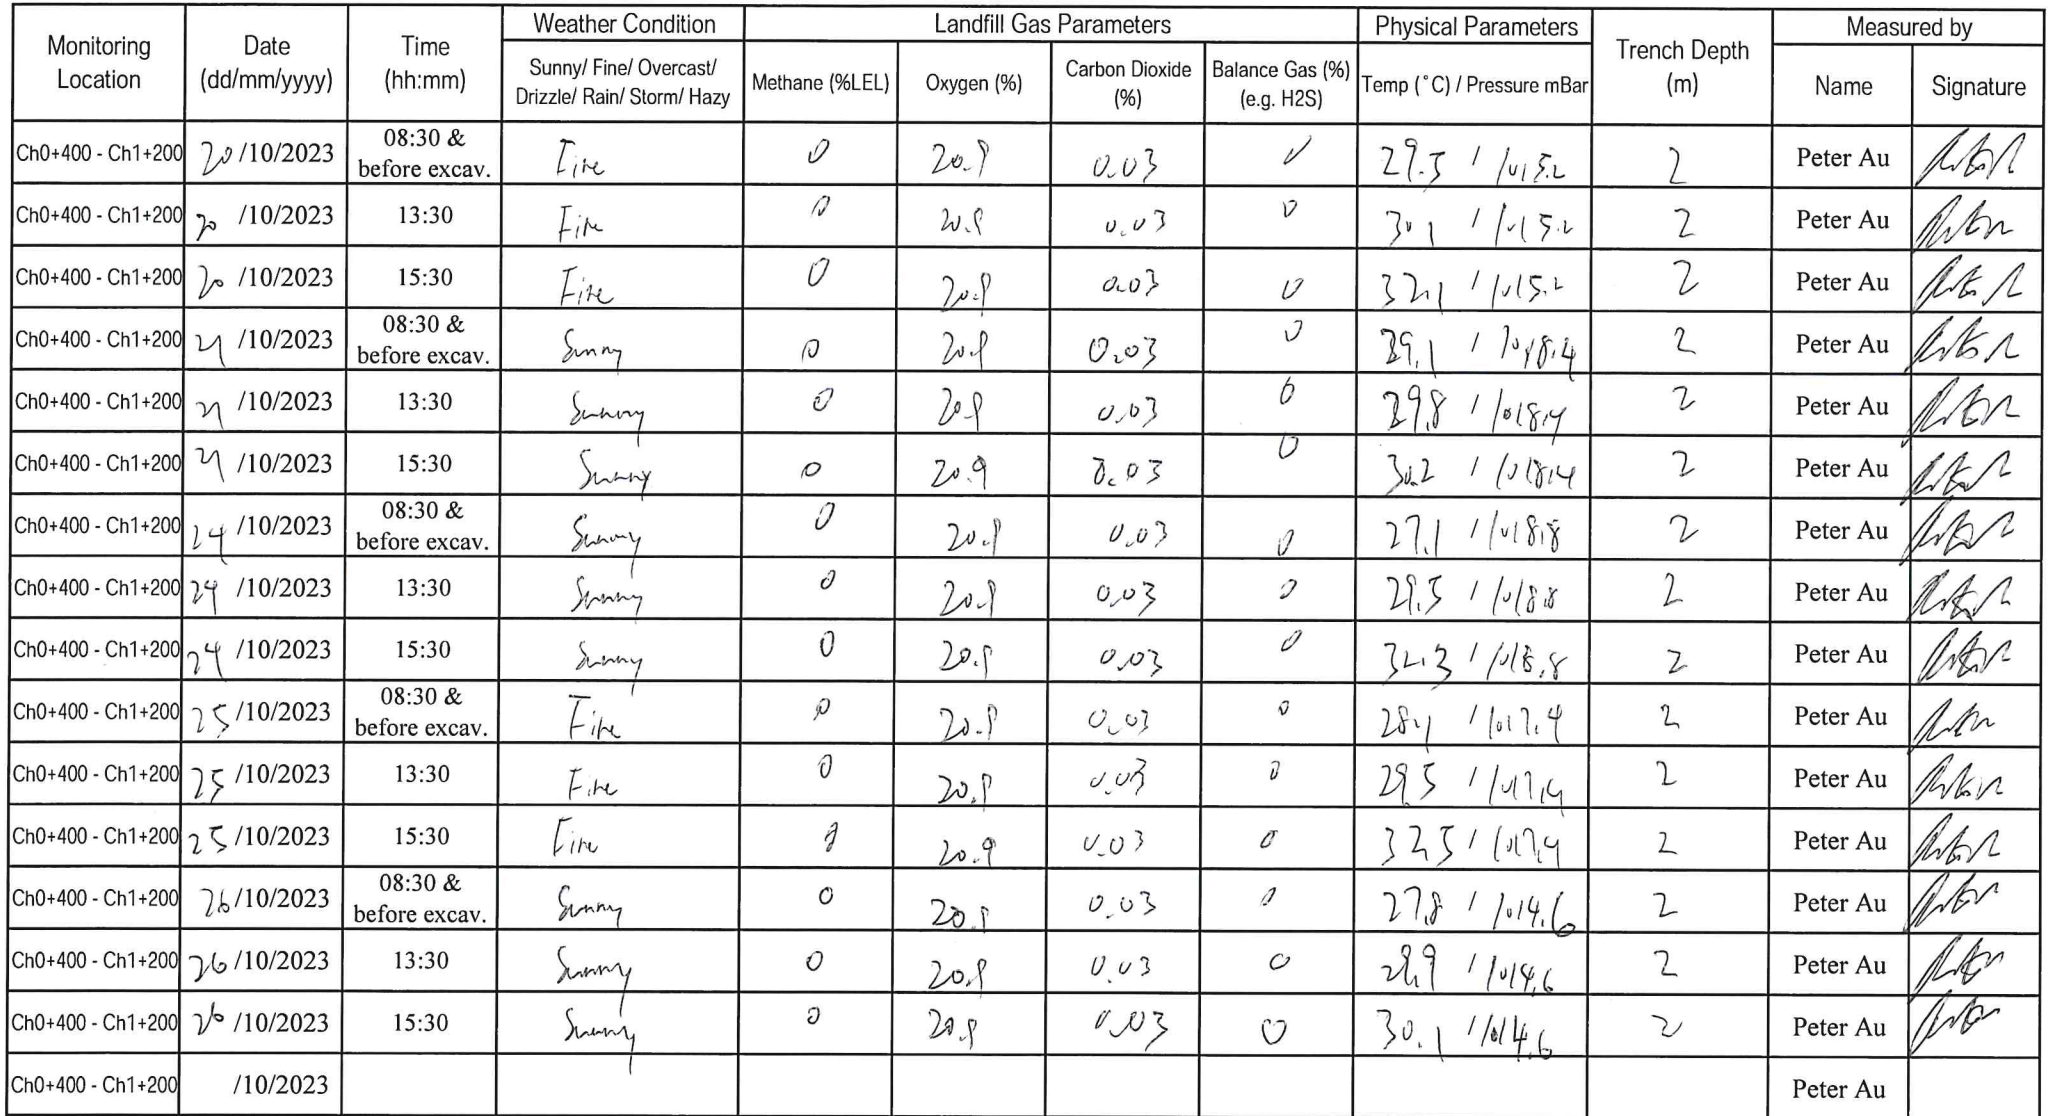 Monitoring Location | Date (dd/mm/yyyy) | Time (hh:mm) | Weather Condition | Landfill Gas Parameters | Physical Parameters | Trench Depth (m) | Measured by
Sunny/ Fine/ Overcast/ Drizzle/ Rain/ Storm/ Hazy | Methane (%LEL) | Oxygen (%) | Carbon Dioxide (%) | Balance Gas (%) (e.g. H2S) | Temp (°C) / Pressure mBar | Name | Signature
Ch0+400 - Ch1+200 | 20 /10/2023 | 08:30 & before excav. | Fine | 0 | 20.9 | 0.03 | 0 | 29.5 / 1015.2 | 2 | Peter Au
Ch0+400 - Ch1+200 | 20 /10/2023 | 13:30 | Fine | 0 | 20.9 | 0.03 | 0 | 30.1 / 1015.2 | 2 | Peter Au
Ch0+400 - Ch1+200 | 20 /10/2023 | 15:30 | Fine | 0 | 20.9 | 0.03 | 0 | 32.1 / 1015.2 | 2 | Peter Au
Ch0+400 - Ch1+200 | 21 /10/2023 | 08:30 & before excav. | Sunny | 0 | 20.9 | 0.03 | 0 | 29.1 / 1018.4 | 2 | Peter Au
Ch0+400 - Ch1+200 | 21 /10/2023 | 13:30 | Sunny | 0 | 20.9 | 0.03 | 0 | 29.8 / 1018.4 | 2 | Peter Au
Ch0+400 - Ch1+200 | 21 /10/2023 | 15:30 | Sunny | 0 | 20.9 | 0.03 | 0 | 30.2 / 1018.4 | 2 | Peter Au
Ch0+400 - Ch1+200 | 24 /10/2023 | 08:30 & before excav. | Sunny | 0 | 20.9 | 0.03 | 0 | 27.1 / 1018.8 | 2 | Peter Au
Ch0+400 - Ch1+200 | 24 /10/2023 | 13:30 | Sunny | 0 | 20.9 | 0.03 | 0 | 29.5 / 1018.8 | 2 | Peter Au
Ch0+400 - Ch1+200 | 24 /10/2023 | 15:30 | Sunny | 0 | 20.9 | 0.03 | 0 | 32.3 / 1018.8 | 2 | Peter Au
Ch0+400 - Ch1+200 | 25 /10/2023 | 08:30 & before excav. | Fine | 0 | 20.9 | 0.03 | 0 | 28.1 / 1017.4 | 2 | Peter Au
Ch0+400 - Ch1+200 | 25 /10/2023 | 13:30 | Fine | 0 | 20.9 | 0.03 | 0 | 29.5 / 1017.4 | 2 | Peter Au
Ch0+400 - Ch1+200 | 25 /10/2023 | 15:30 | Fine | 0 | 20.9 | 0.03 | 0 | 32.5 / 1017.4 | 2 | Peter Au
Ch0+400 - Ch1+200 | 26 /10/2023 | 08:30 & before excav. | Sunny | 0 | 20.9 | 0.03 | 0 | 27.8 / 1014.6 | 2 | Peter Au
Ch0+400 - Ch1+200 | 26 /10/2023 | 13:30 | Sunny | 0 | 20.9 | 0.03 | 0 | 28.9 / 1014.6 | 2 | Peter Au
Ch0+400 - Ch1+200 | 26 /10/2023 | 15:30 | Sunny | 0 | 20.9 | 0.03 | 0 | 30.1 / 1014.6 | 2 | Peter Au
Ch0+400 - Ch1+200 | /10/2023 | Peter Au